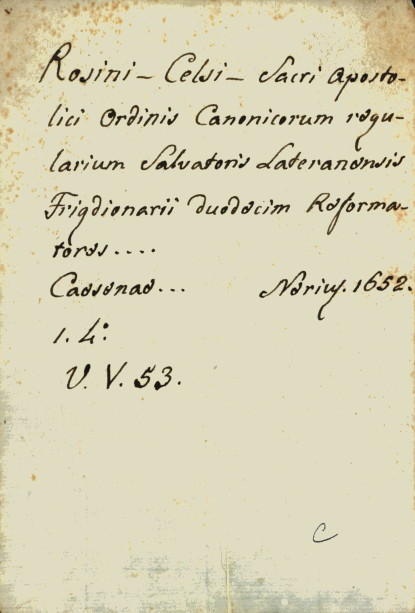 Rosini - Celsi - Sacri Aposto-
lici Ordinis Canonicorum regu-
larium Salvatoris Lateranensis
Frigdionarii duodecim Reforma-
tores....
Caesenae... Nerius. 1652.
1. 4.º
V. V. 53.
C